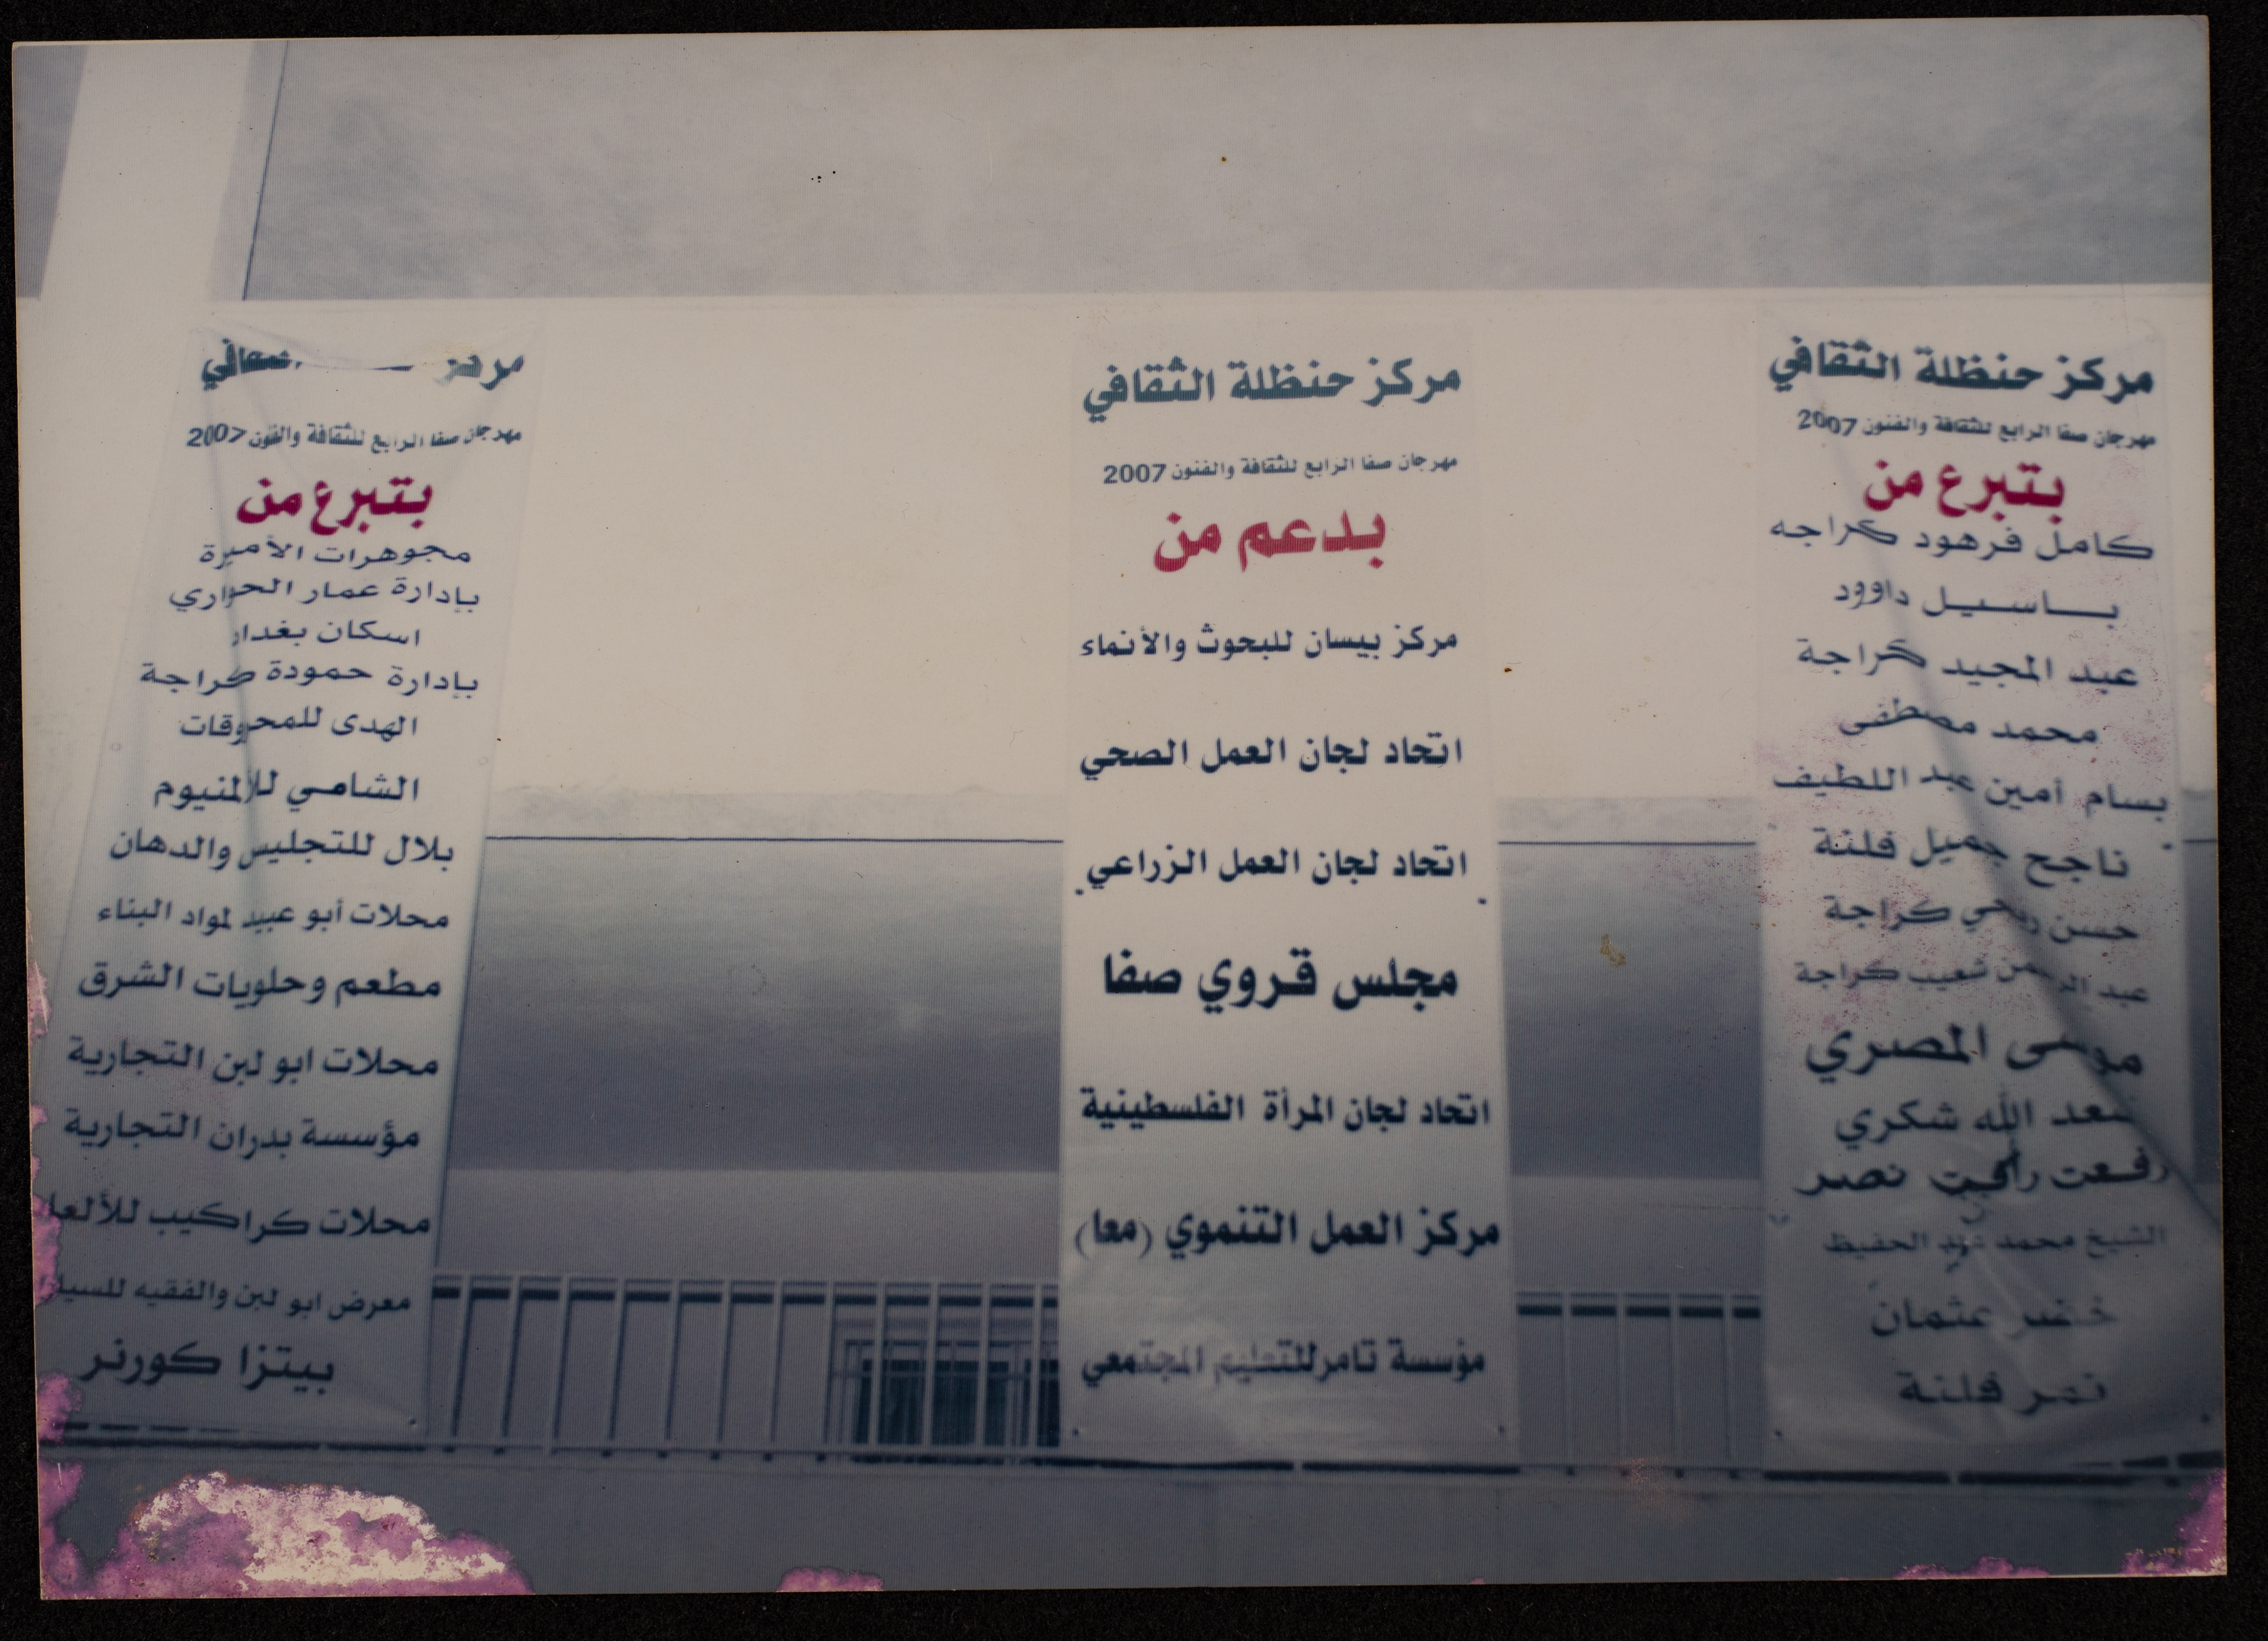 مركز حنظلة الثقافي
مهرجان صفا الرابع للثقافة والفنون 2007
بتبرع من
كامل فرهود كراجه
باسيل داوود
عبد المجيد كراجة
محمد مصطفى
بسام أمين عبد اللطيف
ناجح جميل فلنة
حسن ربحي كراجة
عبد الرحمن شعيب كراجة
موسى المصري
سعد الله شكري
رفعت رأفت نصر
الشيخ محمد عبد الحفيظ
خضر عثمان
نمر فلنة
مركز حنظلة الثقافي
مهرجان صفا الرابع للثقافة والفنون 2007
بدعم من
مركز بيسان للبحوث والأنماء
اتحاد لجان العمل الصحي
اتحاد لجان العمل الزراعي
مجلس قروي صفا
اتحاد لجان المرأة الفلسطينية
مركز العمل التنموي (معا)
مؤسسة تامر للتعليم المجتمعي
مركز
مهرجان صفا الرابع للثقافة والفنون 2007
بتبرع من
مجوهرات الأميرة
بإدارة عمار الحواري
اسكان بغداد
بإدارة حمودة كراجة
الهدى للمحروقات
الشامي للألمنيوم
بلال للتجليس والدهان
محلات أبو عبيد لمواد البناء
مطعم وحلويات الشرق
محلات ابو لبن التجارية
مؤسسة بدران التجارية
محلات كراكيب
معرض ابو لبن والفقيه
بيتزا كورنر